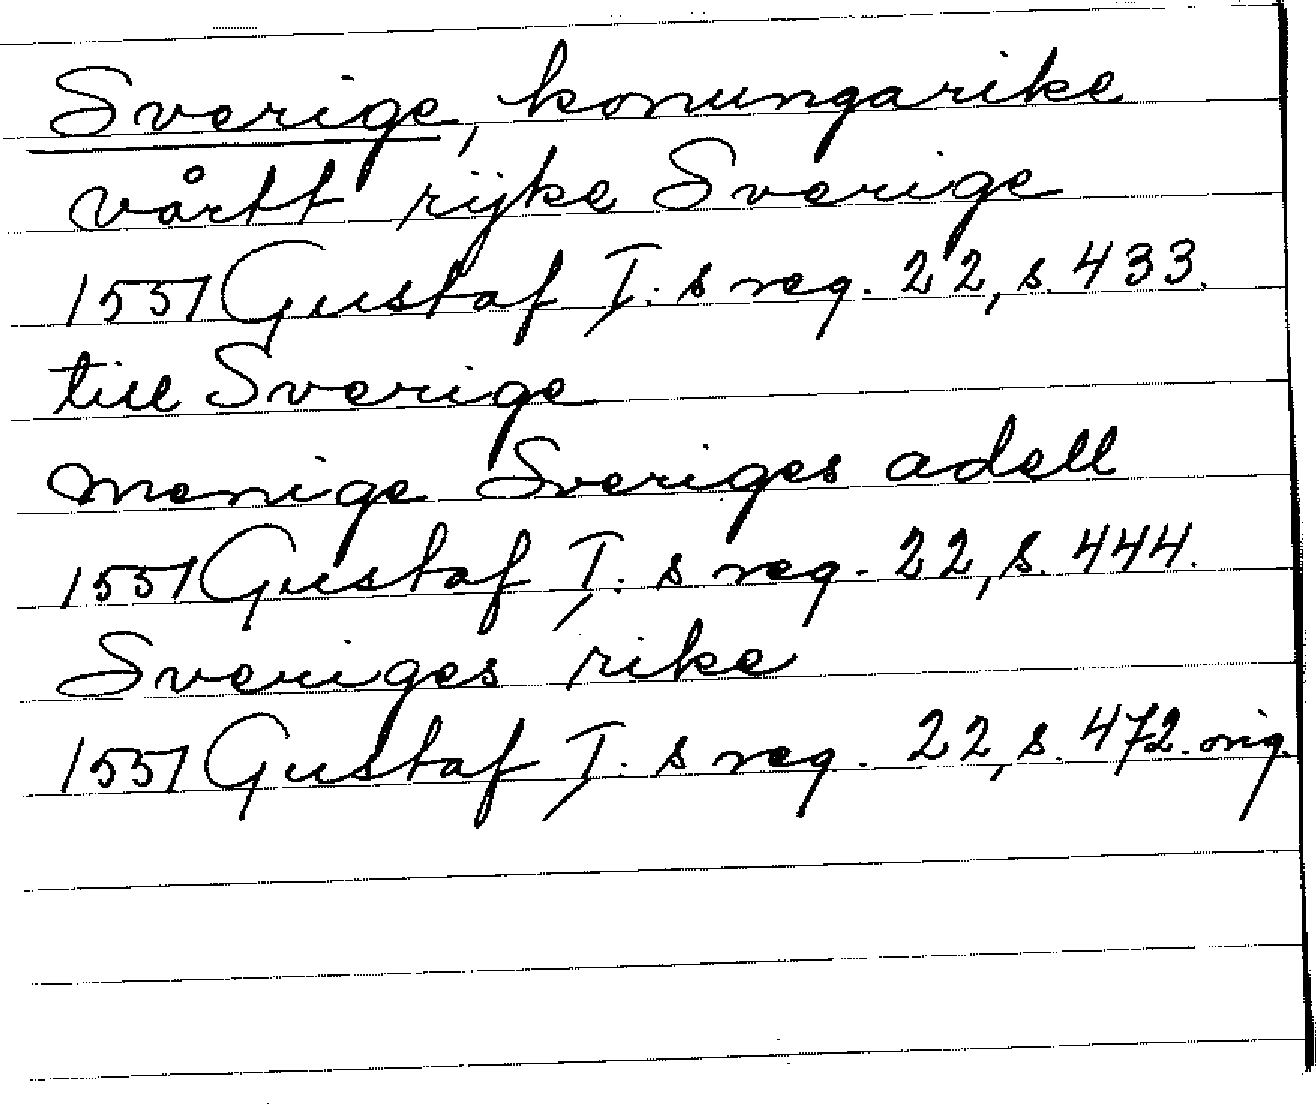 Sverige, konungarike
vårtt rijke Sverige
1551 Gustaf I. s reg. 22, s. 433.
till Sverige
menige Sveriges adell
1551 Gustaf I. s reg. 22, s. 444.
Sveriges rike
1551 Gustaf I. s reg. 22, s. 472. orig.